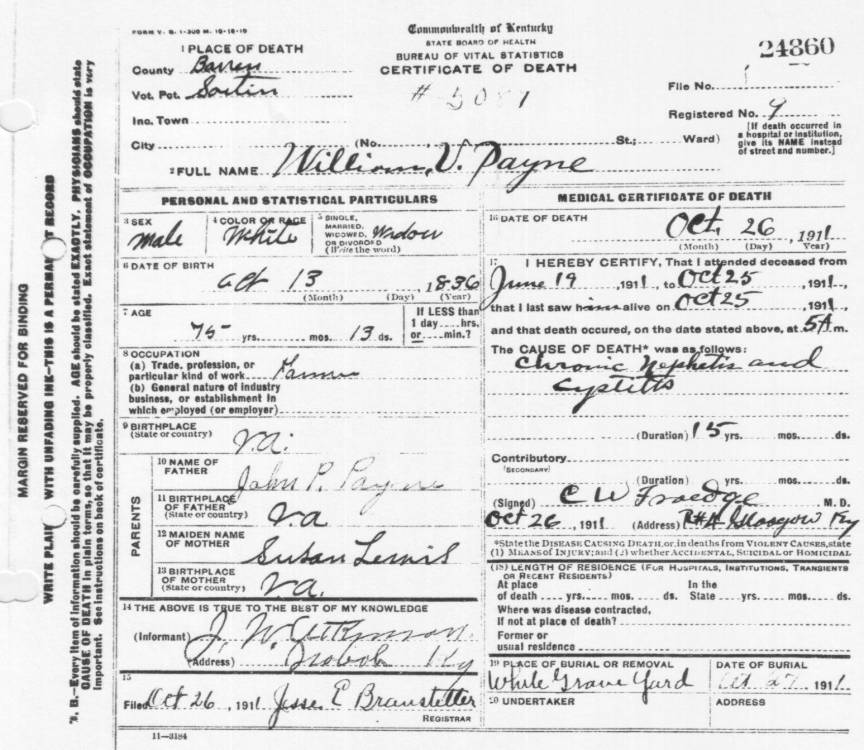 FORM V. S. 1-300 M. 10-18-10
Commonwealth of Kentucky
STATE BOARD OF HEALTH
BUREAU OF VITAL STATISTICS
CERTIFICATE OF DEATH
24860
1 PLACE OF DEATH
County Barren
Vot. Pct.
# 5081
File No. 1
Inc. Town
Registered No. 9
City (No. St.; Ward)
[If death occurred in a hospital or institution, give its NAME instead of street and number.]
2 FULL NAME William V. Payne
PERSONAL AND STATISTICAL PARTICULARS
3 SEX Male
4 COLOR OR RACE White
5 SINGLE, MARRIED, WIDOWED, OR DIVORCED (Write the word) Widow
6 DATE OF BIRTH Oct 13, 1836
(Month) (Day) (Year)
7 AGE 75 yrs. mos. 13 ds.
If LESS than 1 day....hrs. or....min.?
8 OCCUPATION
(a) Trade, profession, or particular kind of work Farmer
(b) General nature of industry business, or establishment in which employed (or employer)
9 BIRTHPLACE (State or country) Va.
PARENTS
10 NAME OF FATHER John P. Payne
11 BIRTHPLACE OF FATHER (State or country) Va
12 MAIDEN NAME OF MOTHER Susan Lewis
13 BIRTHPLACE OF MOTHER (State or country) Va.
14 THE ABOVE IS TRUE TO THE BEST OF MY KNOWLEDGE
(Informant) J. W. Atkinson
(Address) Ky
15
Filed Oct 26, 1911 Jesse E Branstetter
REGISTRAR
11—3184
MEDICAL CERTIFICATE OF DEATH
16 DATE OF DEATH Oct. 26, 1911
(Month) (Day) (Year)
17 I HEREBY CERTIFY, That I attended deceased from
June 19, 1911, to Oct 25 1911,
that I last saw him alive on Oct 25 1911,
and that death occured, on the date stated above, at 5A m.
The CAUSE OF DEATH* was as follows:
Chronic Nephetis and
Cystitis
(Duration) 15 yrs. mos. ds.
Contributory
(SECONDARY)
(Duration) yrs. mos. ds.
(Signed) C W Froedge M. D.
Oct 26, 1911 (Address) R#4 Glasgow Ky
*State the DISEASE CAUSING DEATH, or, in deaths from VIOLENT CAUSES, state
(1) MEANS OF INJURY; and (2) whether ACCIDENTAL, SUICIDAL or HOMICIDAL
(18) LENGTH OF RESIDENCE (FOR HOSPITALS, INSTITUTIONS, TRANSIENTS OR RECENT RESIDENTS)
At place of death yrs. mos. ds. In the State yrs. mos. ds.
Where was disease contracted,
If not at place of death?
Former or usual residence
19 PLACE OF BURIAL OR REMOVAL White Grave Yard
DATE OF BURIAL Oct. 27 1911
20 UNDERTAKER
ADDRESS
MARGIN RESERVED FOR BINDING
WRITE PLAIN WITH UNFADING INK—THIS IS A PERMA T RECORD
N. B.—Every item of information should be carefully supplied. AGE should be stated EXACTLY. PHYSICIANS should state
CAUSE OF DEATH in plain terms, so that it may be properly classified. Exact statement of OCCUPATION is very
important. See instructions on back of certificate.